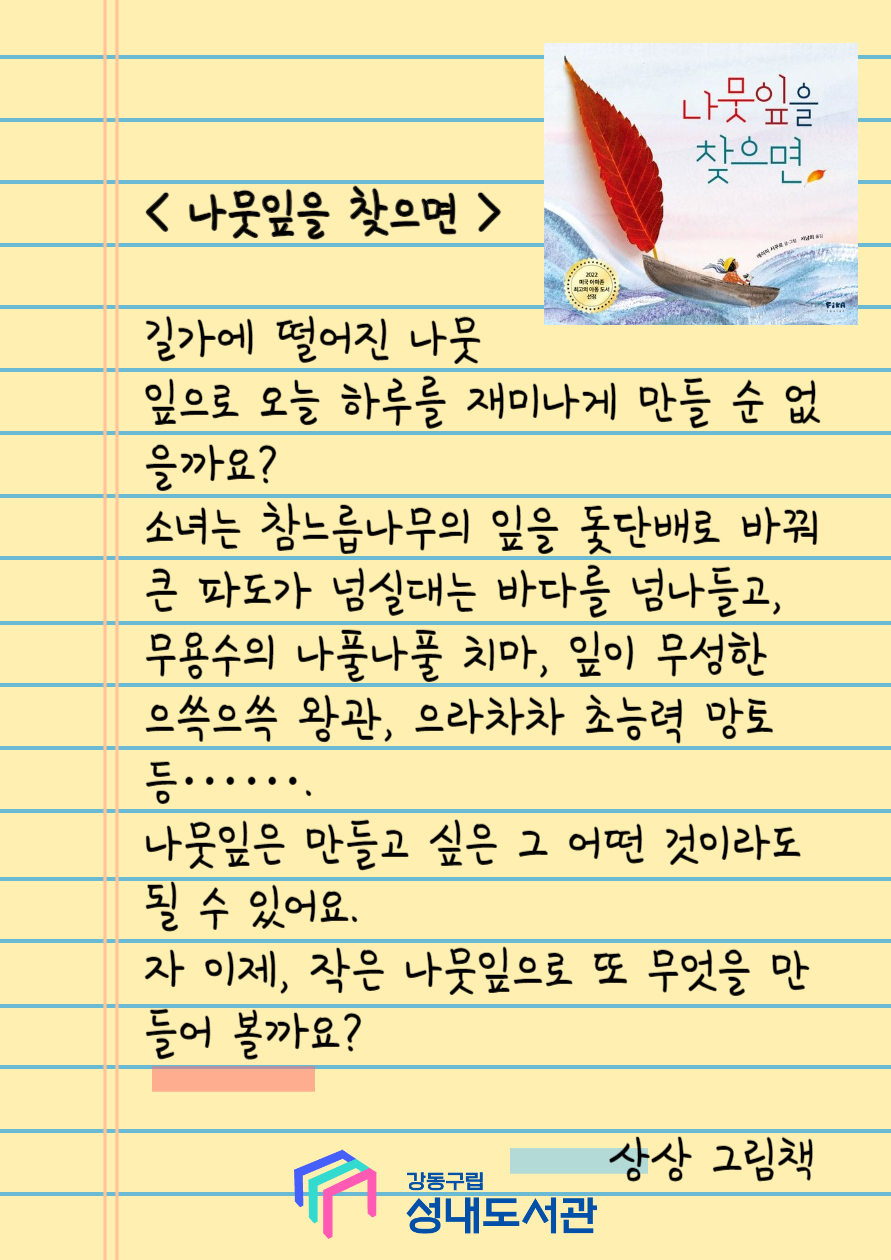 나뭇잎을
찾으면
2022
미국 아마존
최고의 아동 도서
선정
FIKA
< 나뭇잎을 찾으면 >
길가에 떨어진 나뭇
잎으로 오늘 하루를 재미나게 만들 순 없
을까요?
소녀는 참느릅나무의 잎을 돛단배로 바꿔
큰 파도가 넘실대는 바다를 넘나들고,
무용수의 나풀나풀 치마, 잎이 무성한
으쓱으쓱 왕관, 으라차차 초능력 망토
등·······.
나뭇잎은 만들고 싶은 그 어떤 것이라도
될 수 있어요.
자 이제, 작은 나뭇잎으로 또 무엇을 만
들어 볼까요?
상상 그림책
강동구립
성내도서관